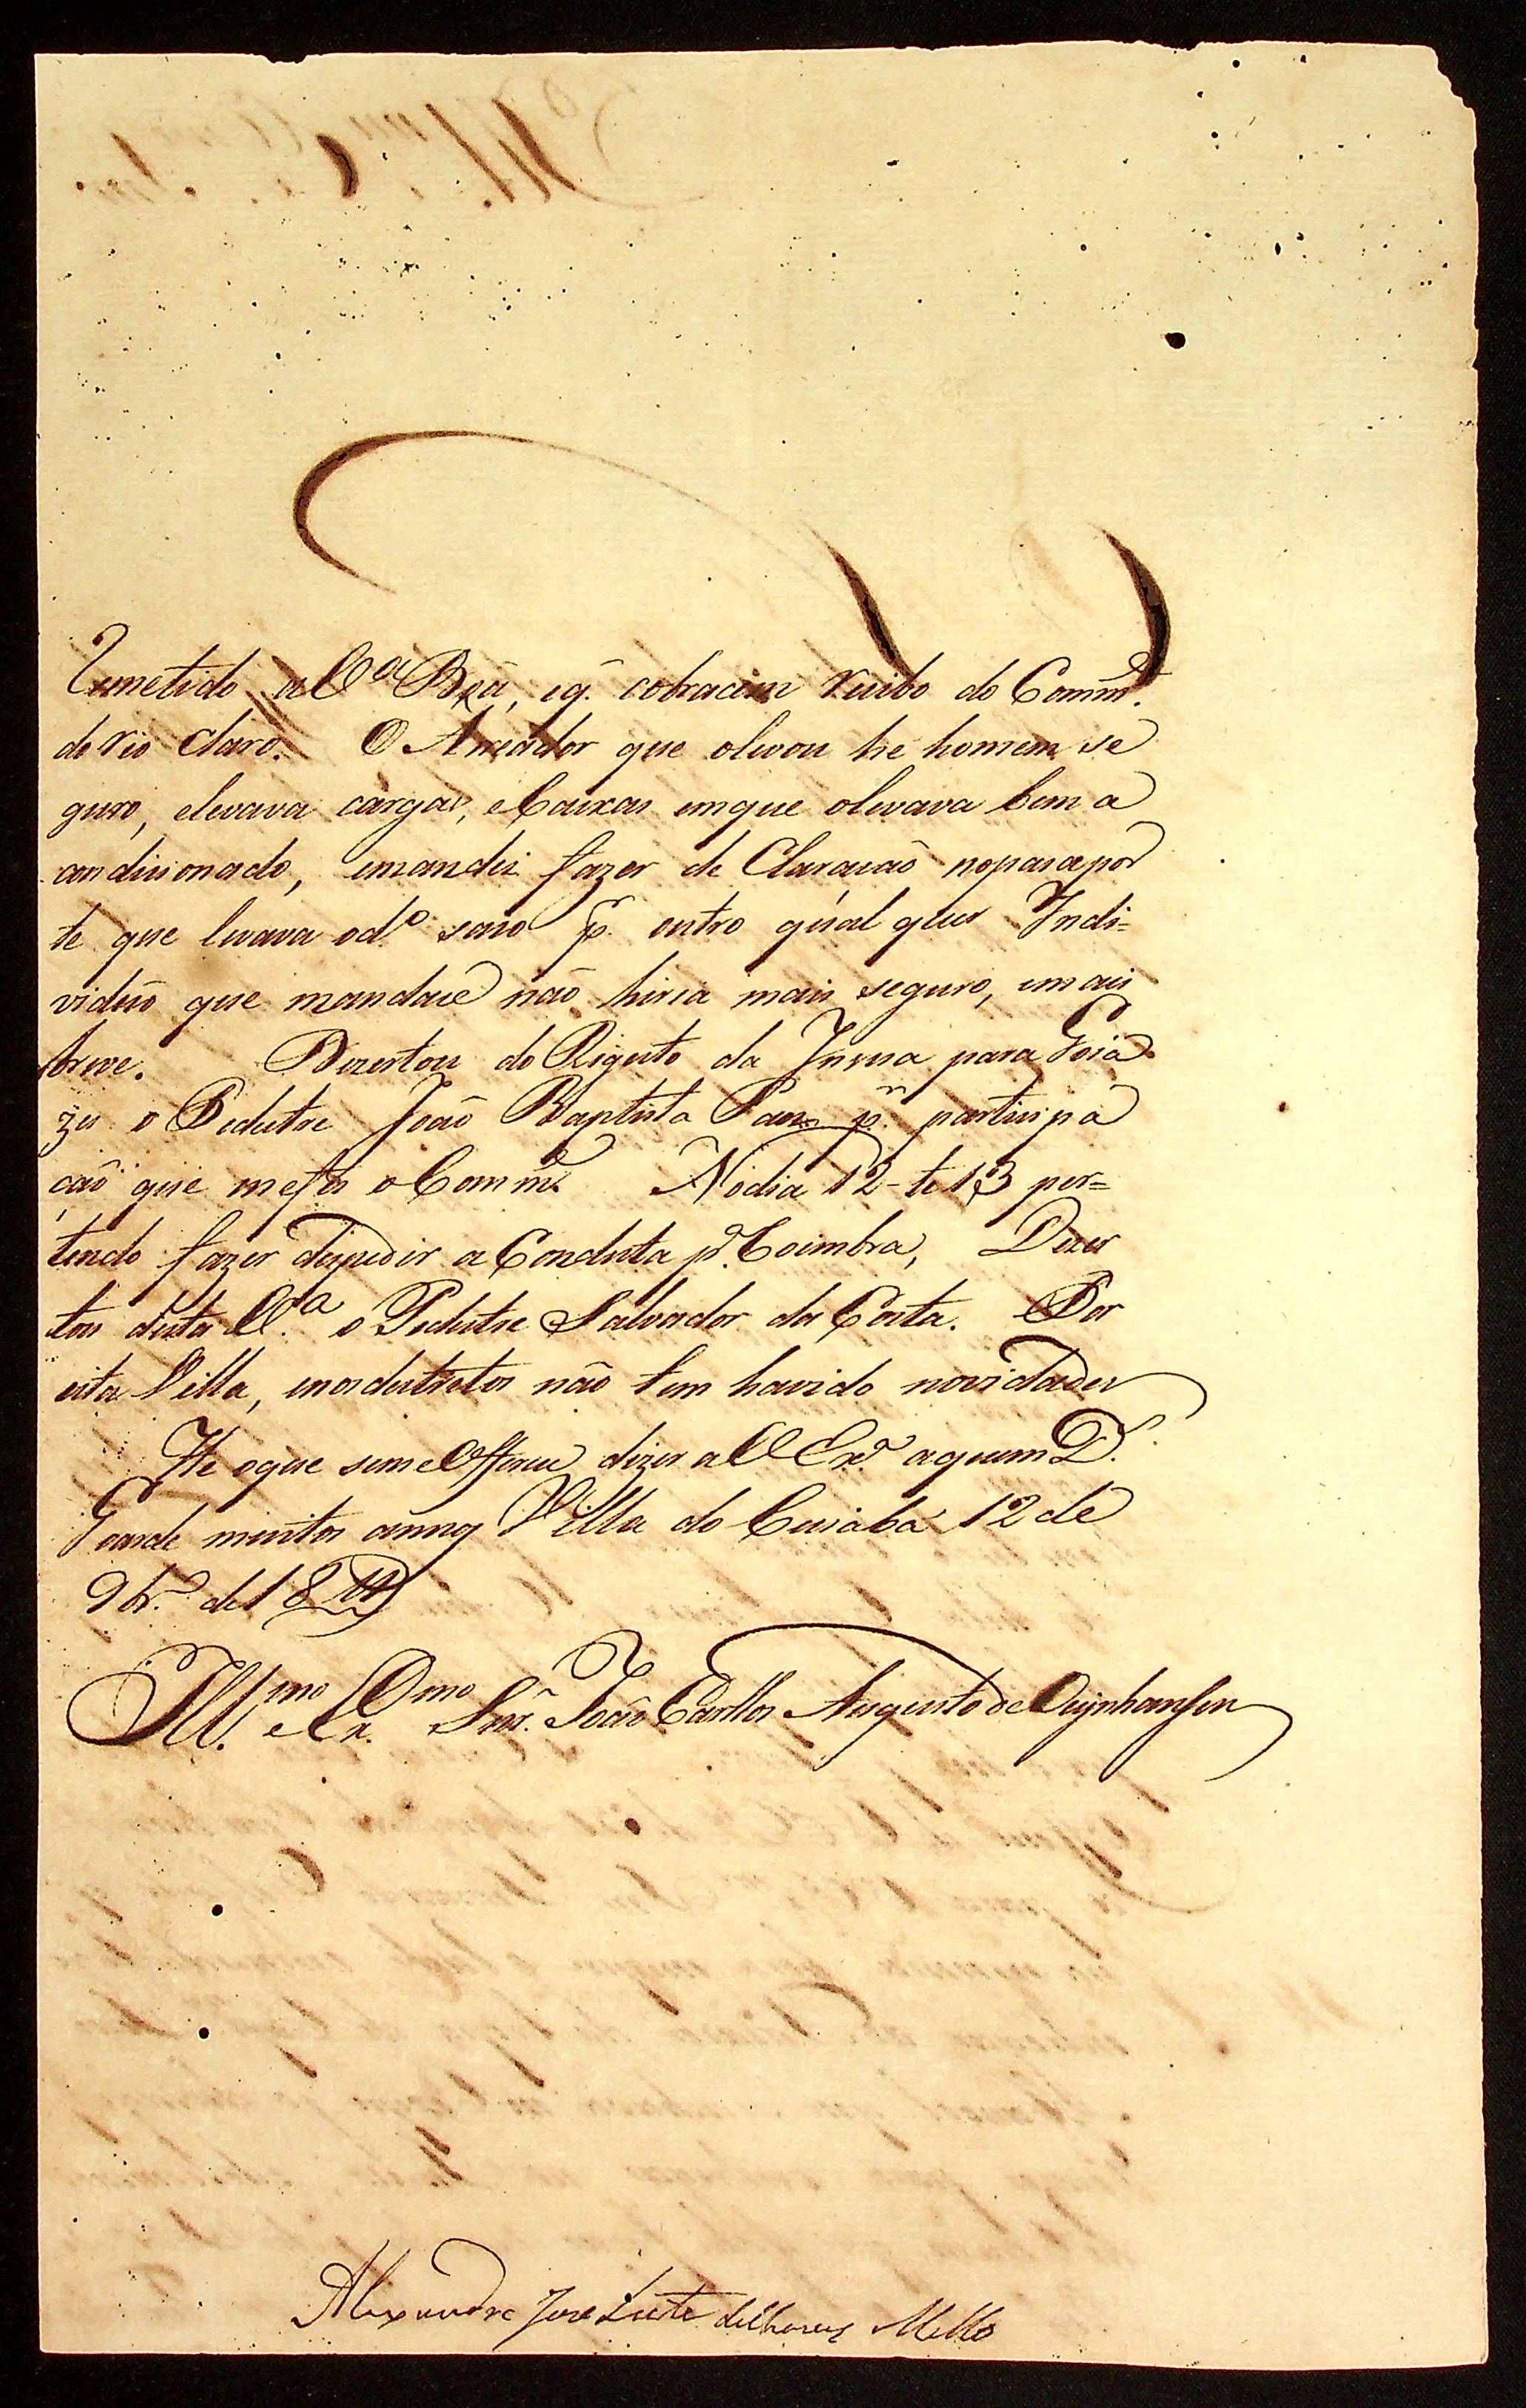 remetido a V.ª Bella, e q. cobracem recibo do Comm.e
do rio Claro. O Arreador que o levou he homem se
guro, elevava cargas, e Caixas emque olevava bem a
condicionado, emandei fazer de Claração nopasapor
te que levava od.º saio p. outro qual quer Indi=
viduo que mandace não hiria mais seguro, emais
breve. Dezertou do Rigisto da Insua para Goia
zes o Pedestre João Baptista Paes p.r participa
ção que mefes o Comm.e Nodia 12 te 13 per=
tendo fazer despedir a Conducta p.ª Coimbra, Dezer
tou desta V.ª o Pedestre Salvador da Costa. Por
esta Villa, enosdestritos não tem havido novidades
He oque seme Offerece dizer a V Ex.ª aquem D.s
Goarde muitos annos Villa do Cuiabá 12 de
9br.º de 18
Ill.mo e Ex.mo Snr. João Carllos Augusto de Oeynhausen
Alexandre Jose Leite de Chaves Mello